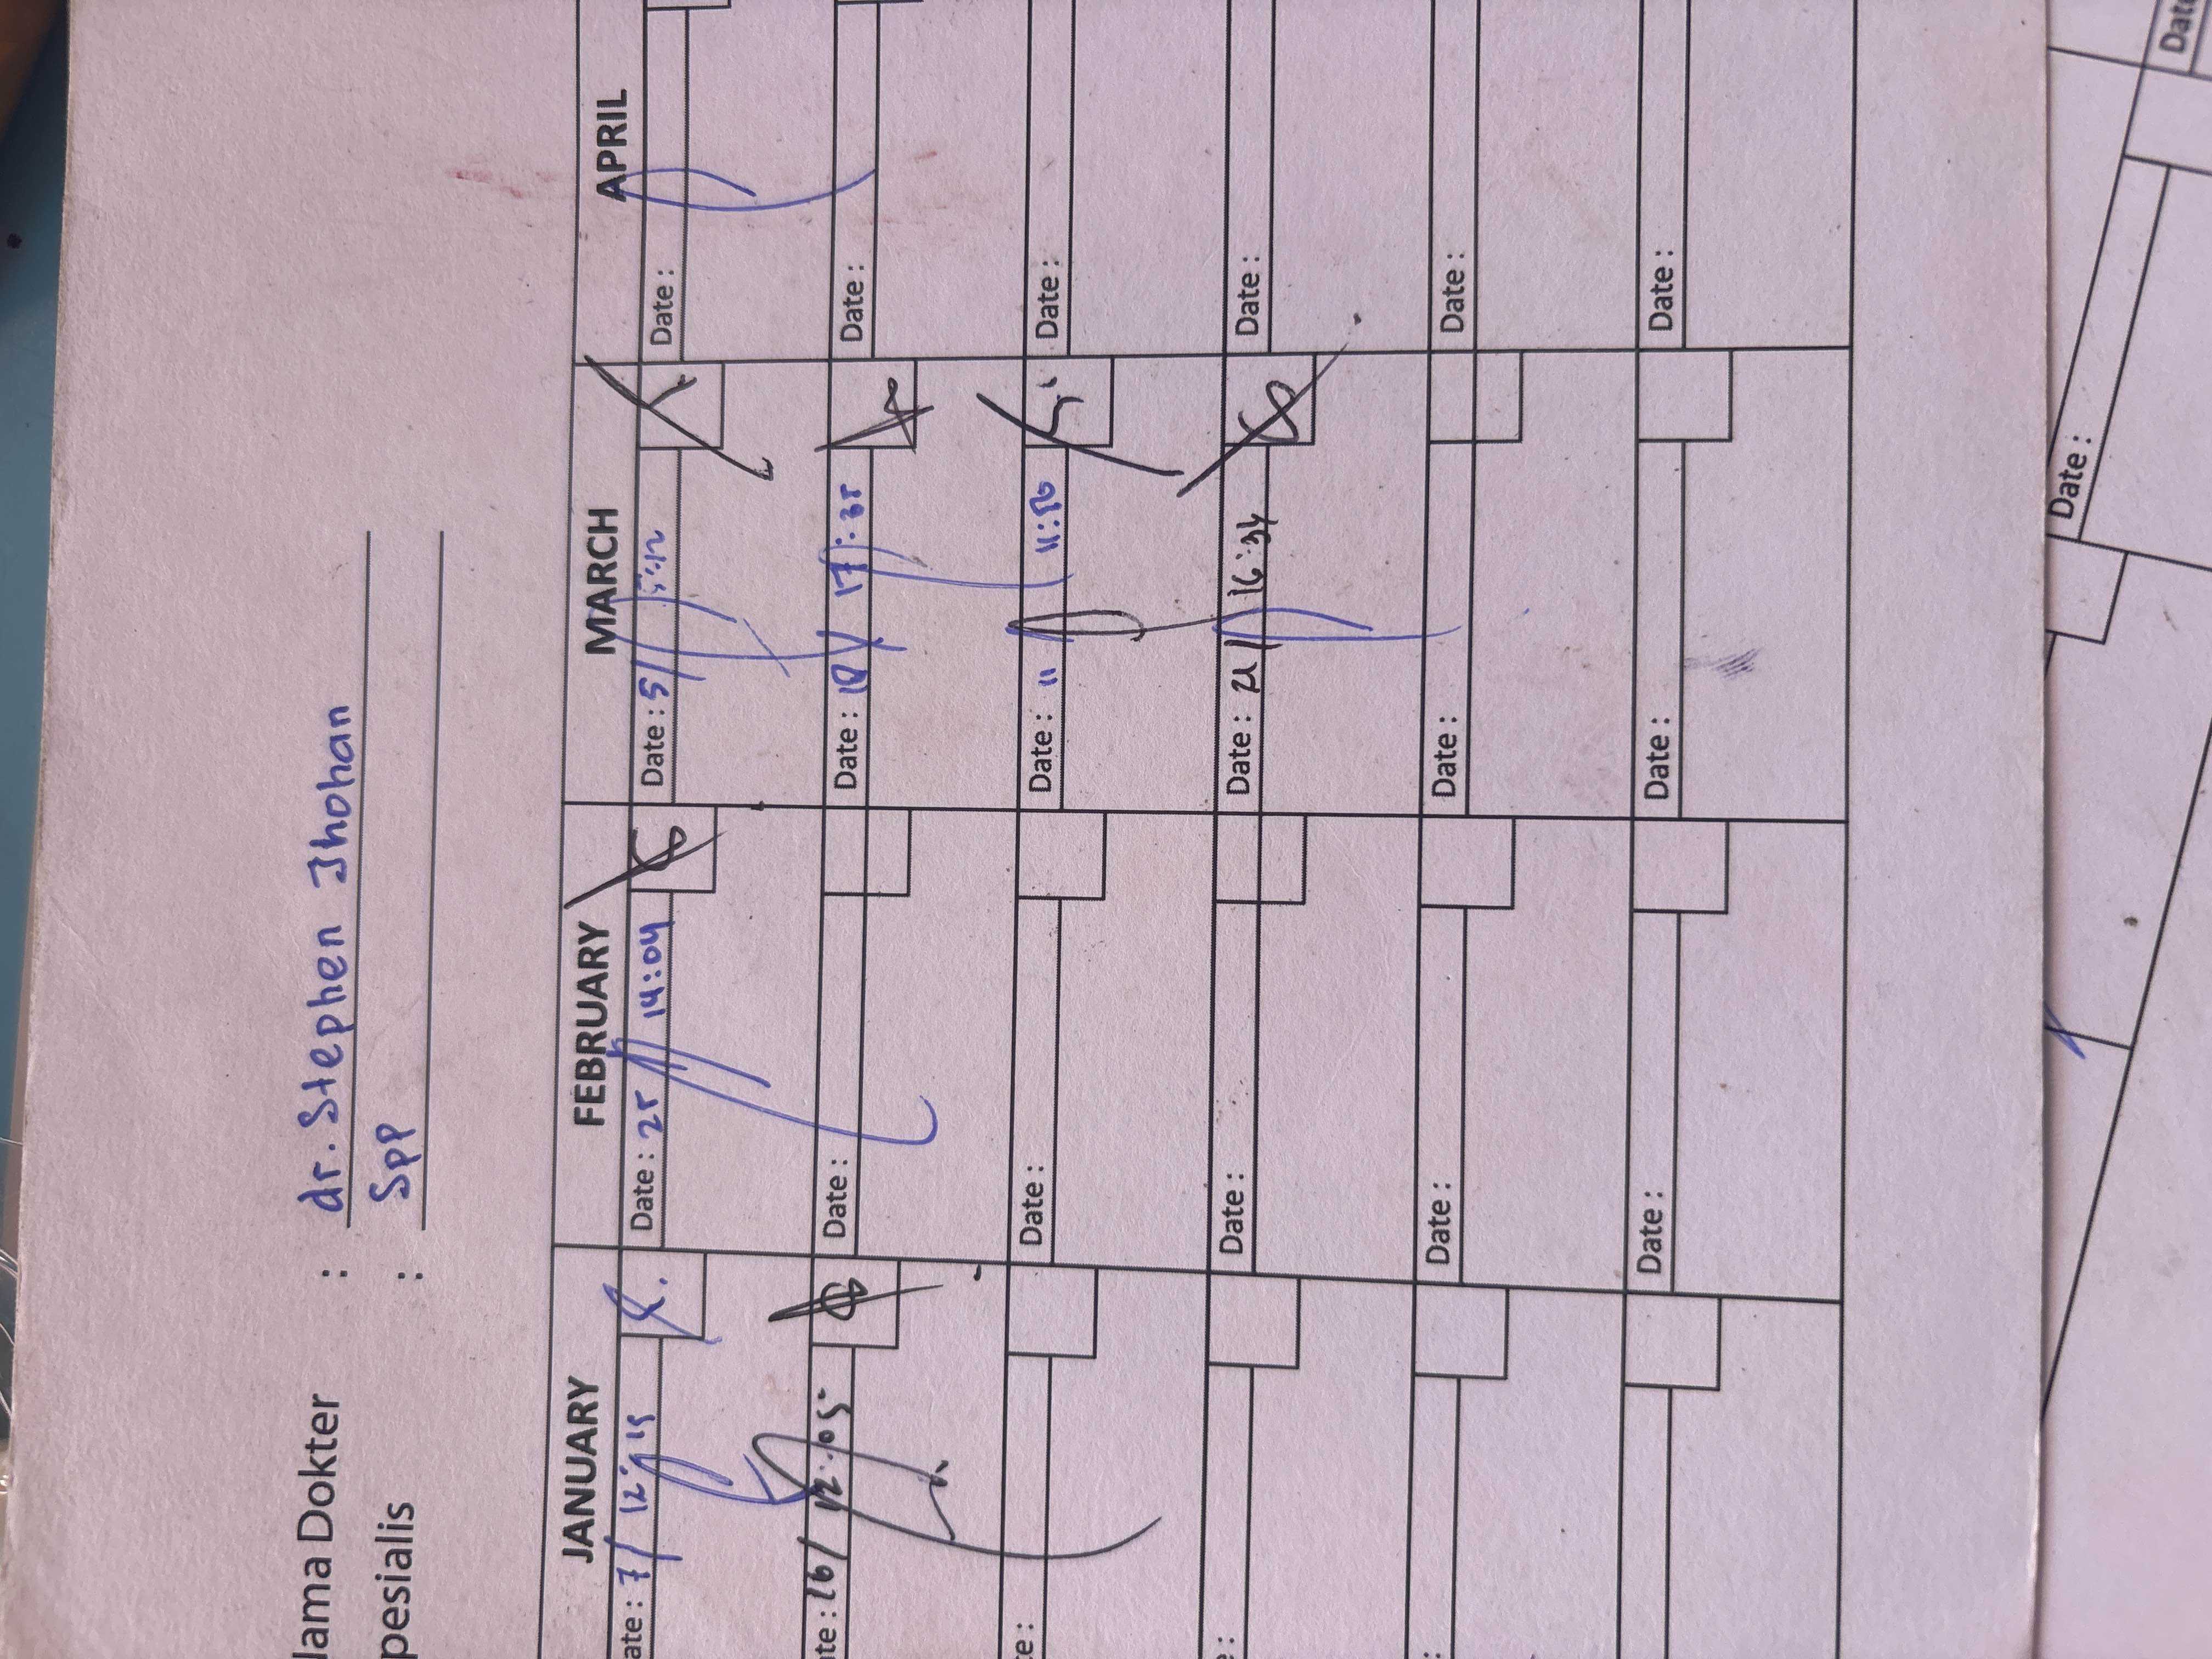 lama Dokter : dr. Stephen Jhohan
pesialis : SPP
JANUARY FEBRUARY MARCH APRIL
ate : 7/ 12:15 Date : 25 14:04 Date : 5/ Date :
te : 16/ 12:05 Date : Date : 17:35 Date :
te: Date : Date : 11 11:56 Date :
e: Date : Date : 21/ 16:34 Date :
: Date : Date : Date :
Date : Date : Date :
Date :
Date